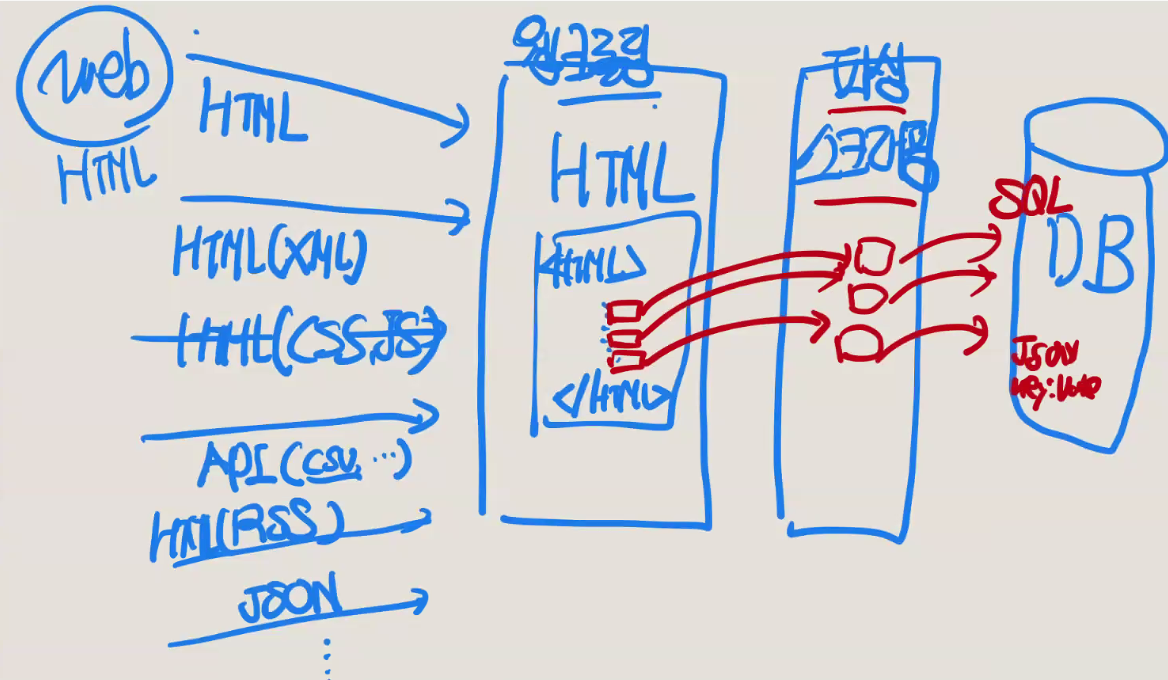 web
HTML
HTML
HTML(XML)
HTML(CSS,JS)
API(csv, ...)
HTML(RSS)
JSON
HTML
<HTML>
</HTML>
SQL
DB
JSON
key: